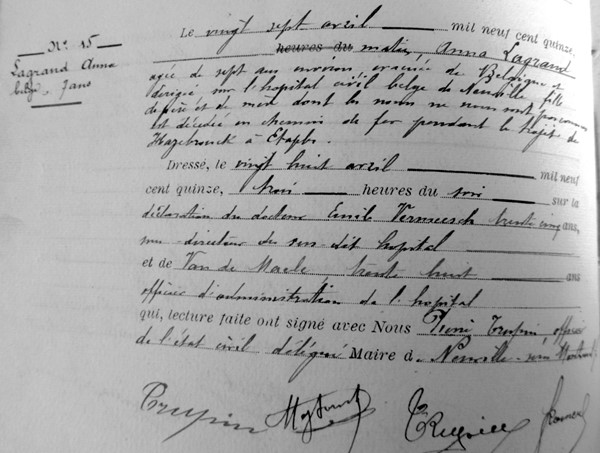 N° 15
Lagrand Anna
belge - 7 ans
Le vingt sept avril mil neuf cent quinze,
heures du matin, Anna Lagrand
agée de sept ans environ, évacuée de Belgique et
dirigée sur l'hopital civil belge de Neuville, fille
de père et de mère dont les noms ne nous sont pas connus
est décédée en chemin de fer pendant le trajet de
Hazebrouck à Etaples.
Dressé, le vingt huit avril mil neuf
cent quinze, trois heures du soir sur la
déclaration du docteur Emil Vermeesch trente cinq ans,
directeur du sus-dit hopital
et de Van de Maele, trente huit ans
officier d'administration de l'hopital
qui, lecture faite ont signé avec Nous Trupin officier
de l'état civil délégué Maire de Neuville-sous-Montreuil
Trupin